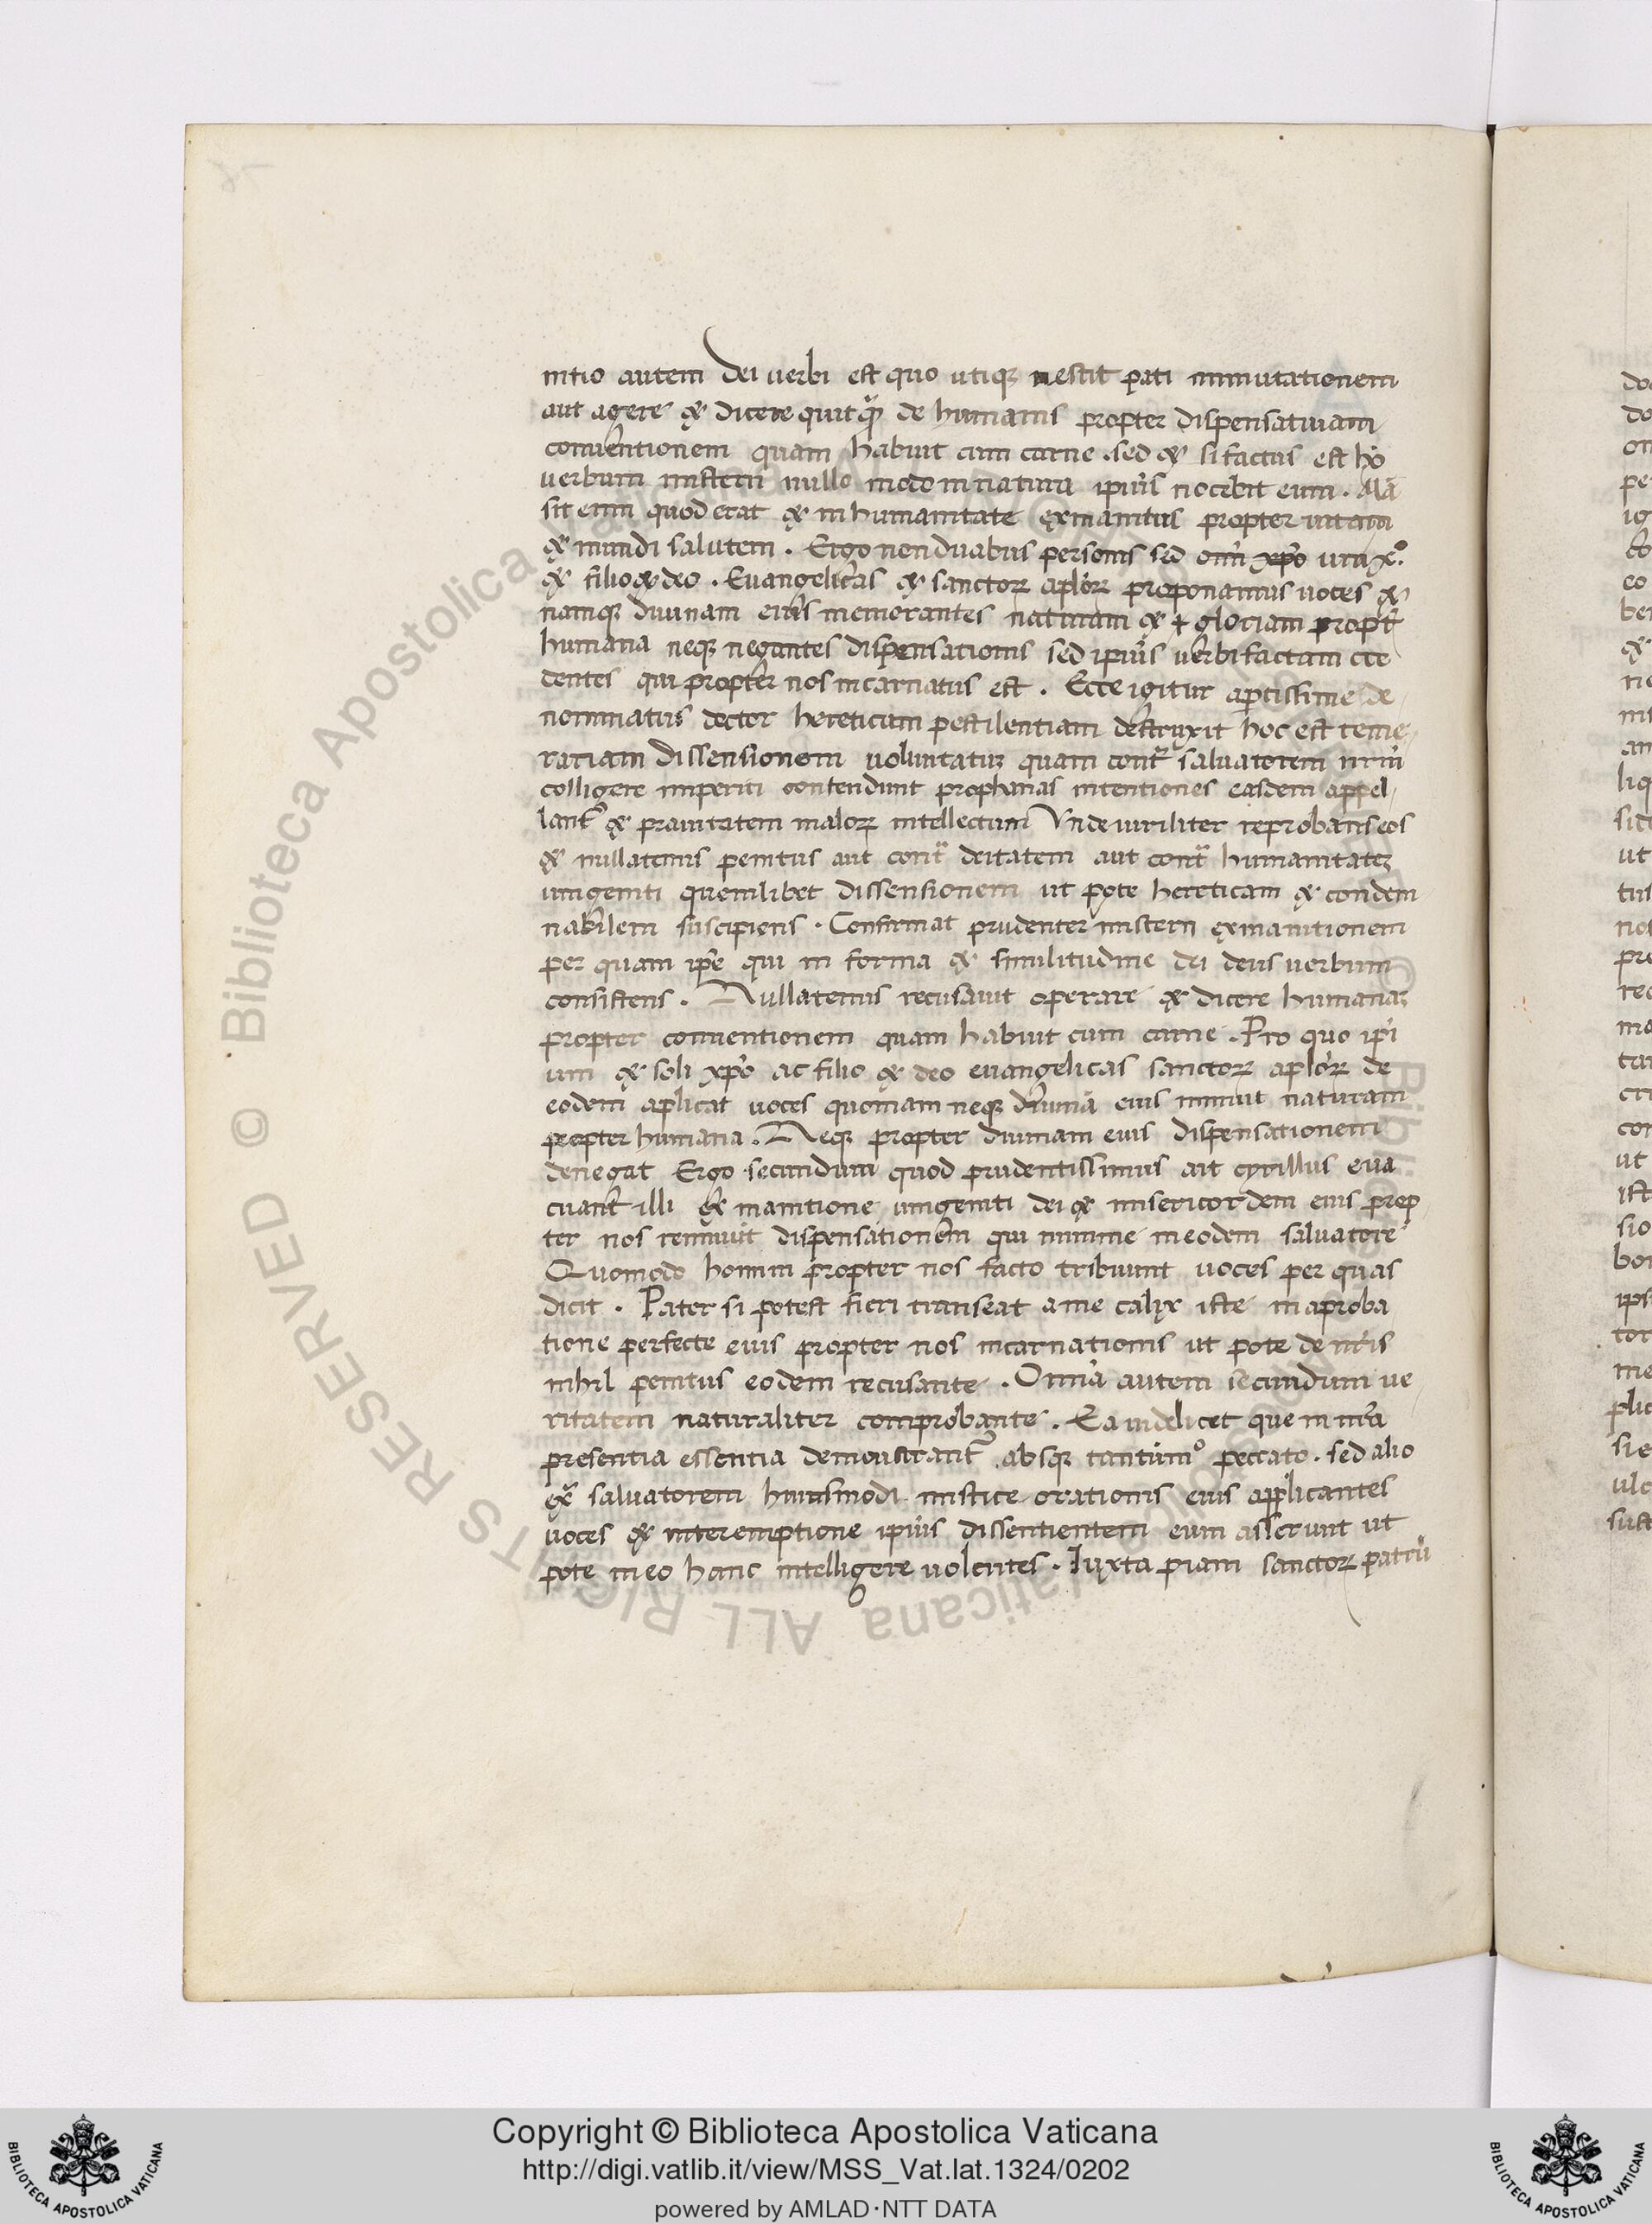 nitio autem dei uerbi est quo utiqꝫ nestit pati inmutationem
aut agere & dicere quitq̃ de humanis propter dispensatiuam
conuentionem quam habuit cum carne . sed & si factus est hõ
uerbum misterii nullo modo in natura ipius nocebit eum . Mã
sit enim quod erat & in humanitate exinanitus propter uitam
& mundi salutem . Ergo non duabus personis sed oĩ xpo
& filio & deo . Euangelicas & sanctoꝝ aploꝝ proponamus uoces &
namqꝫ diuinam eius memorantes naturam & + gloriam propt̃
humana neqꝫ negantes dispensationis sed ipius uerbi factam cre
dentes qui propter nos incarnatus est . Ecce igitur aptissime de
nominatus doctor hereticam pestilentiam destruxit hoc est teme
rariam dissensionem uoluntatuꝫ quam cont̃ saluatorem nr̃m
colligere imperiti contendunt prophanas intentiones easdem appel
lant̃ & prauitatem maloꝝ intellectum Vnde uiriliter reprobans eos
& nullatenus penitus aut cont̃ deitatem aut cont̃ humanitateꝫ
unigeniti quemlibet dissensionem ut pote hereticam & condem
nabilem suscipiens . Confirmat prudenter misterii exinanitionem
per quam ipe qui in forma & similitudine dei deus uerbum
consistens . Nullatenus recusauit operare & dicere humanaꝫ
propter conuentionem quam habuit cum carne . Pro quo ipi
um & soli xpo ac filio & deo euangelicas sanctoꝝ aploꝝ de
eodem aplicat uoces quoniam neqꝫ diuinã eius minuit naturam
propter humana . Neqꝫ propter diuinam eius dispensationem
denegat Ergo secundum quod prudentissimus ait cyrillus eua
cuant illi ex inanitione unigeniti dei & misericordem eius prop
ter nos rennuit dispensationem qui minime in eodem saluatore
Quomodo homini propter nos facto tribuunt uoces per quas
dicit . Pater si potest fieri transeat a me calix iste in aproba
tione perfecte eius propter nos incarnationis ut pote de nr̃is
nihil penitus eodem recusante . Omia autem secundum ue
ritatem naturaliter comprobante . Ea uidelicet que in nr̃a
presentia essentia demonstrant̃ absqꝫ tantumo peccato . sed alio
& saluatorem huiusmodi mistice orationis eius applicantes
uoces & interemptione ipius dissentientem eum asserunt ut
pote in eo hanc intelligere uolentes . Iuxta piam sanctoꝝ patrũ
Copyright © Biblioteca Apostolica Vaticana
http://digi.vatlib.it/view/MSS_Vat.lat.1324/0202
powered by AMLAD·NTT DATA
© Biblioteca Apostolica Vaticana ALL RIGHTS RESERVED
BIBLIOTECA APOSTOLICA VATICANA
BIBLIOTECA APOSTOLICA VATICANA